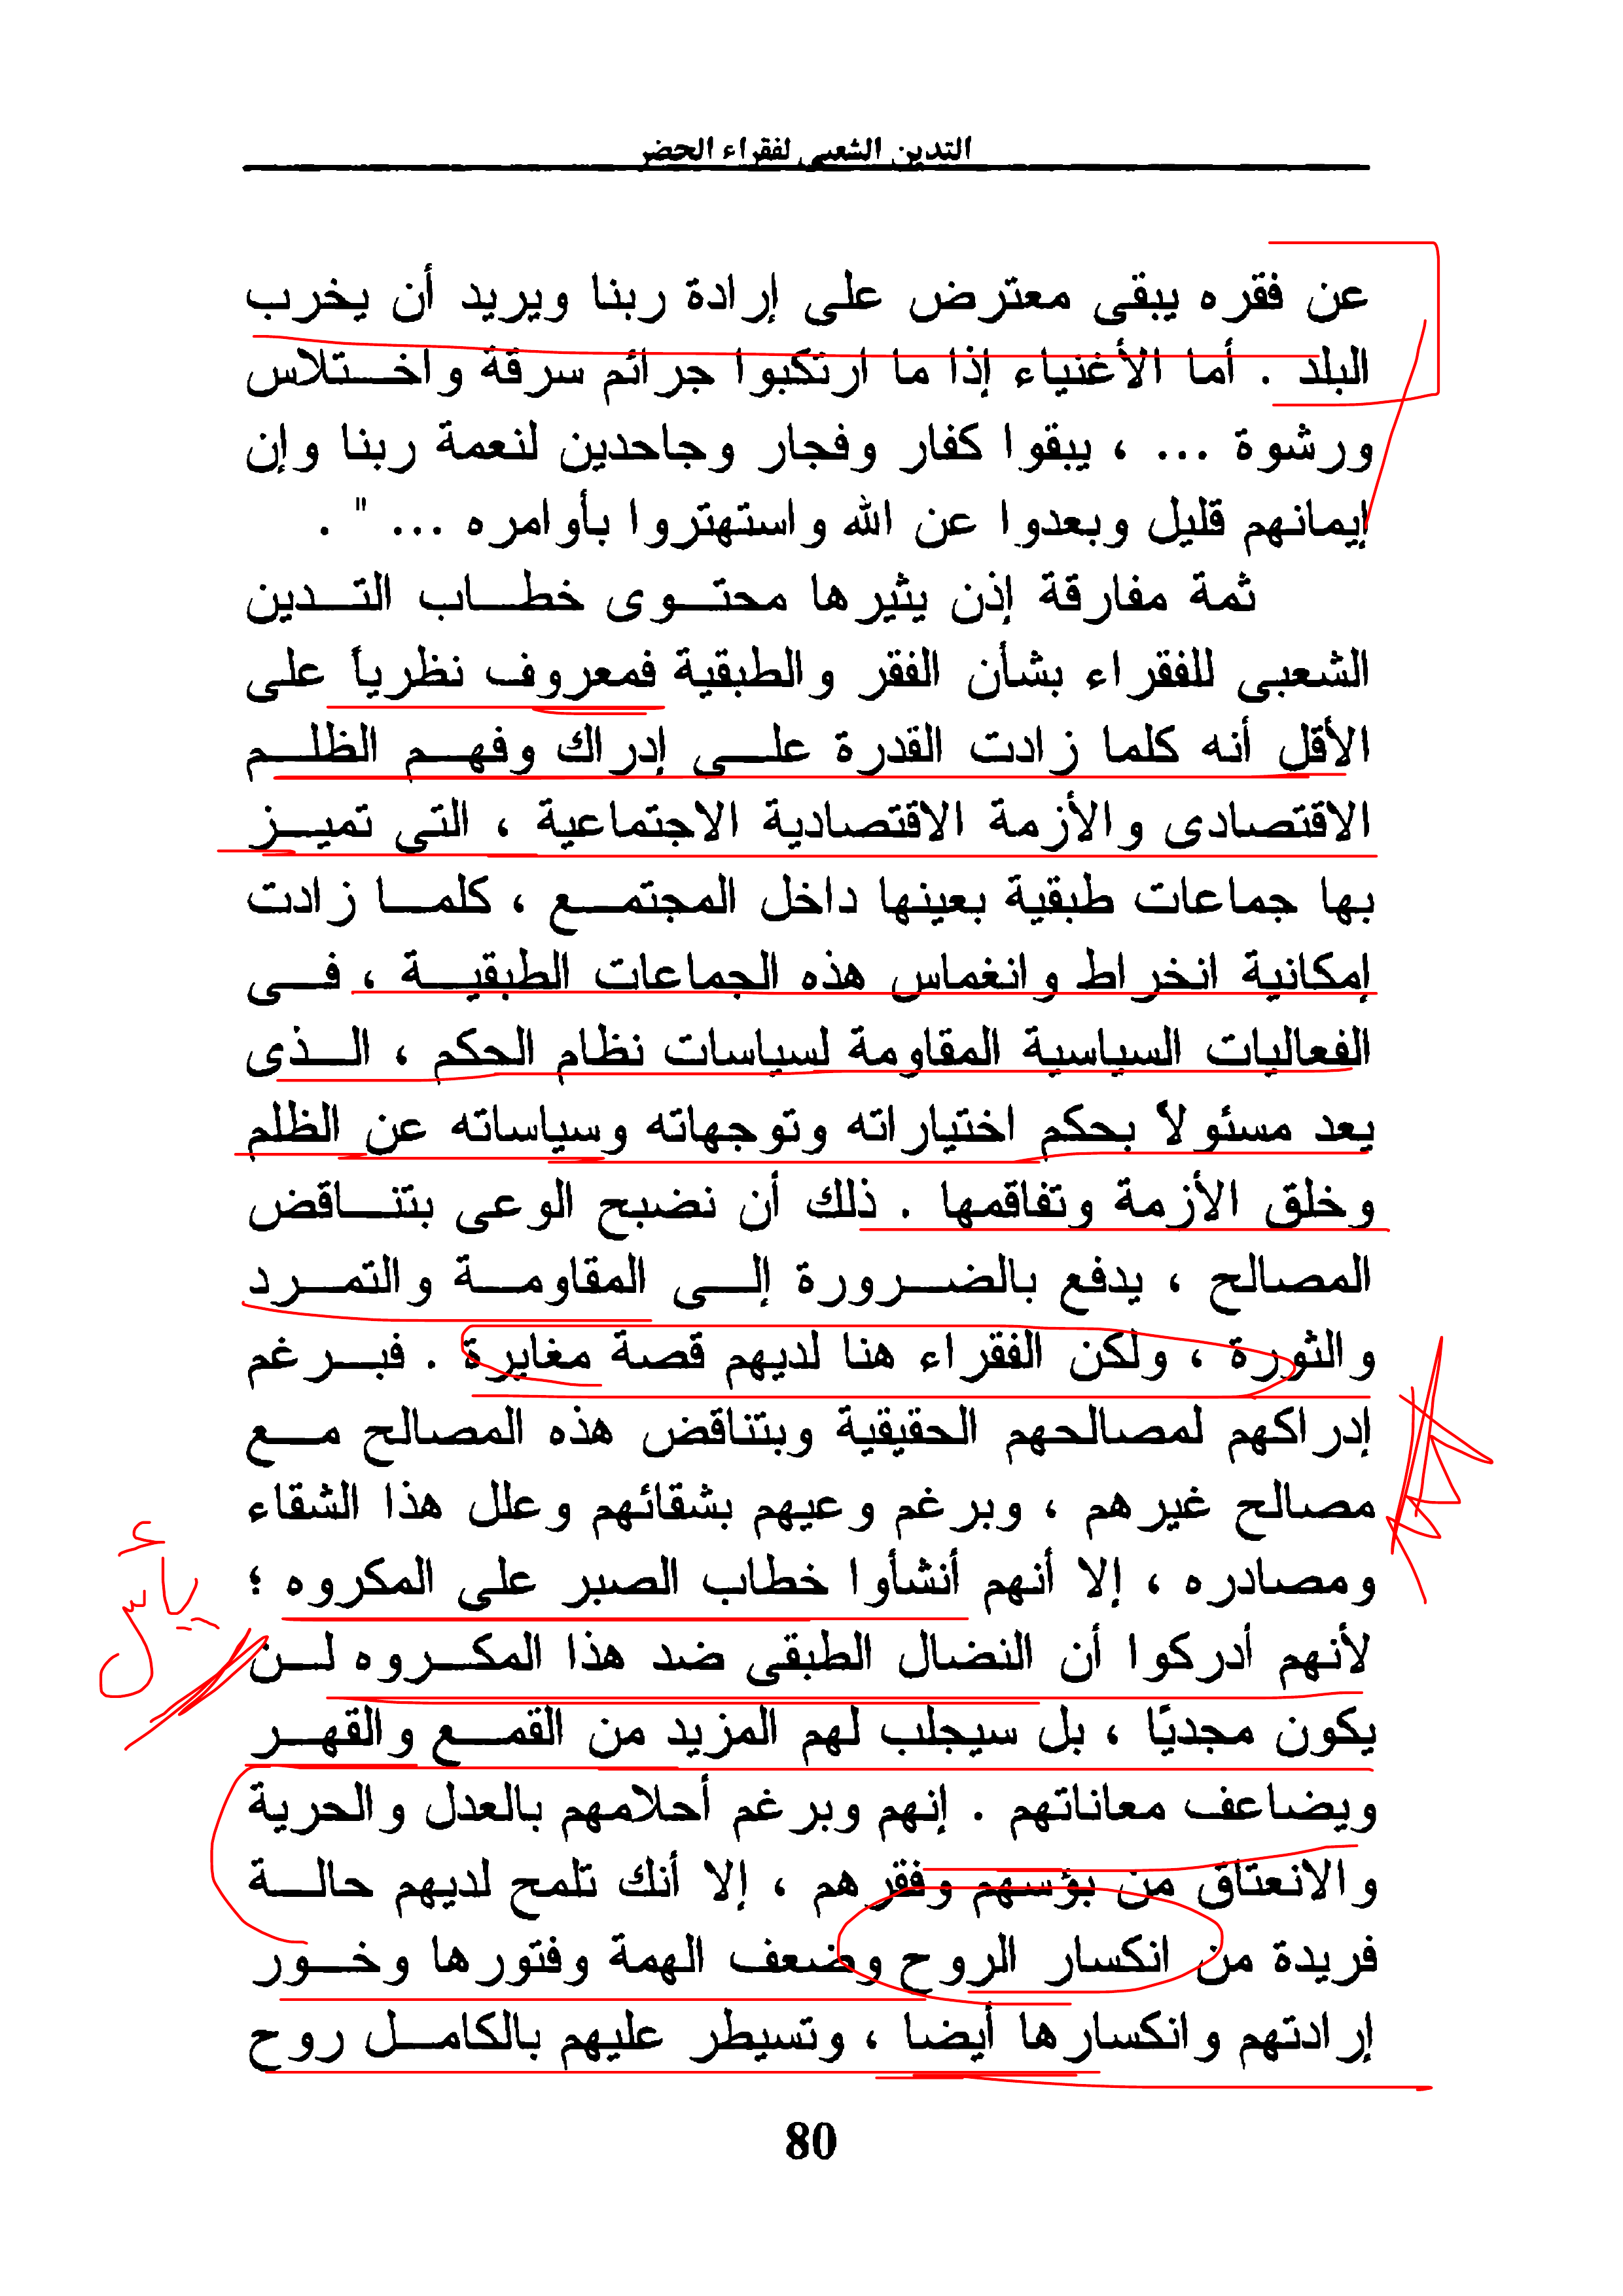 التدين الشعبى لفقراء الحضر
عن فقره يبقى معترض على إرادة ربنا ويريد أن يخرب
البلد . أما الأغنياء إذا ما ارتكبوا جرائم سرقة واختلاس
ورشوة ... ، يبقوا كفار وفجار وجاحدين لنعمة ربنا وإن
إيمانهم قليل وبعدوا عن الله واستهتروا بأوامره ... " .
ثمة مفارقة إذن يثيرها محتوى خطاب التدين
الشعبى للفقراء بشأن الفقر والطبقية فمعروف نظرياً على
الأقل أنه كلما زادت القدرة على إدراك وفهم الظلم
الاقتصادى والأزمة الاقتصادية الاجتماعية ، التى تميز
بها جماعات طبقية بعينها داخل المجتمع ، كلما زادت
إمكانية انخراط وانغماس هذه الجماعات الطبقية ، فى
الفعاليات السياسية المقاومة لسياسات نظام الحكم ، الذى
يعد مسئولاً بحكم اختياراته وتوجهاته وسياساته عن الظلم
وخلق الأزمة وتفاقمها . ذلك أن نضبح الوعى بتناقض
المصالح ، يدفع بالضرورة إلى المقاومة والتمرد
والثورة ، ولكن الفقراء هنا لديهم قصة مغايرة . فبرغم
إدراكهم لمصالحهم الحقيقية وبتناقض هذه المصالح مع
مصالح غيرهم ، وبرغم وعيهم بشقائهم وعلل هذا الشقاء
ومصادره ، إلا أنهم أنشأوا خطاب الصبر على المكروه ؛
يأس
لأنهم أدركوا أن النضال الطبقى ضد هذا المكروه لن
يكون مجديًا ، بل سيجلب لهم المزيد من القمع والقهر
ويضاعف معاناتهم . إنهم وبرغم أحلامهم بالعدل والحرية
والانعتاق من بؤسهم وفقرهم ، إلا أنك تلمح لديهم حالة
فريدة من انكسار الروح وضعف الهمة وفتورها وخور
إرادتهم وانكسارها أيضا ، وتسيطر عليهم بالكامل روح
80